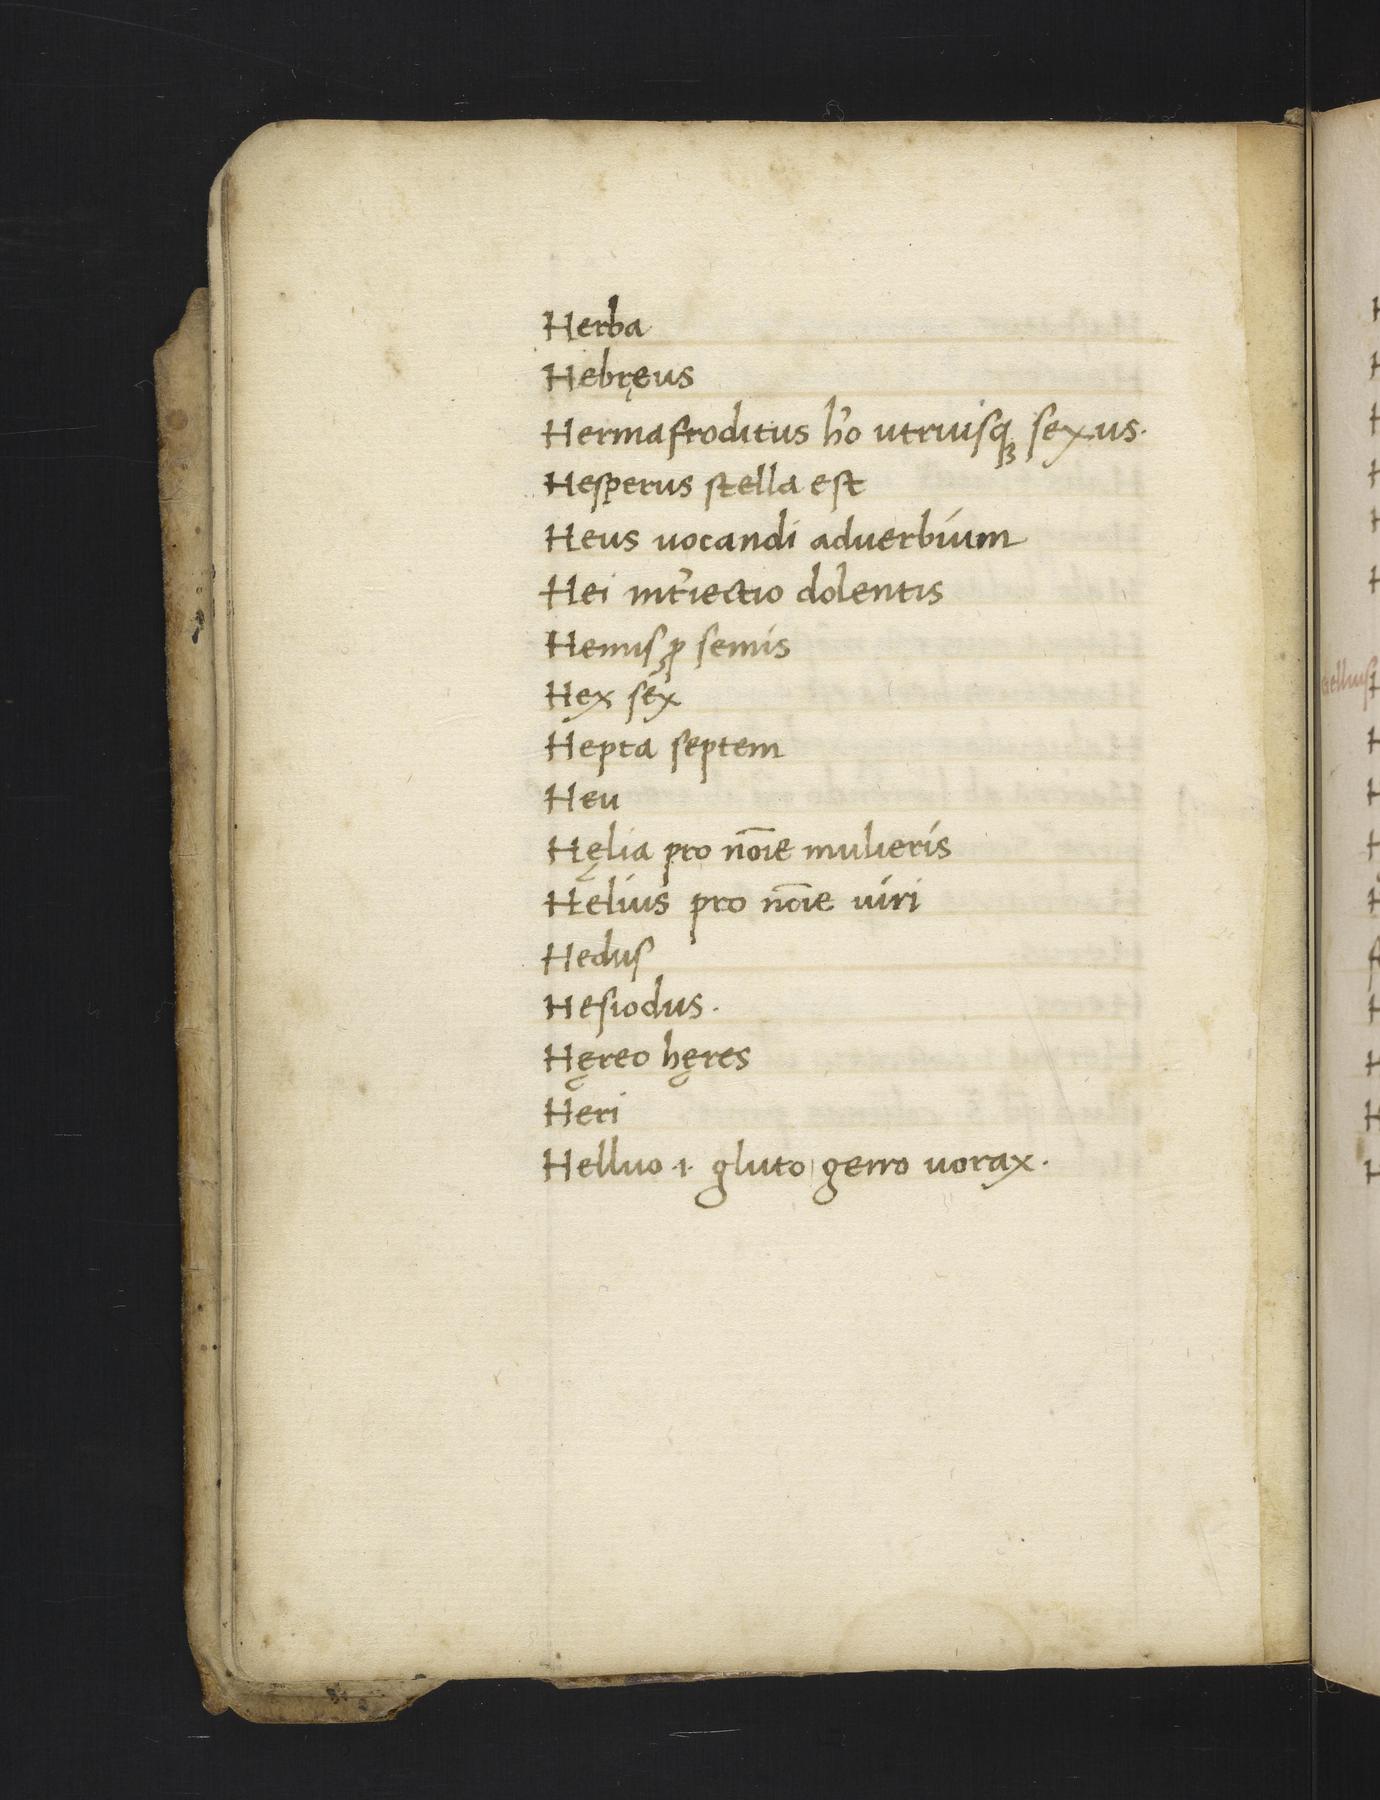 Herba
Hebręus
Hermafroditus h̓o utriusq̨ sexus.
Hesperus stella est
Heus uocandi aduerbium
Hei int̓iectio dolentis
Hemis ꝓ semis
Hex sex
Hepta septem
Heu
Hęlia pro no͞ie mulieris
Helius pro no͞ie uiri
Hedus
Hesiodus.
Hęreo hęres
Heri
Helluo .i. gluto gerro uorax.